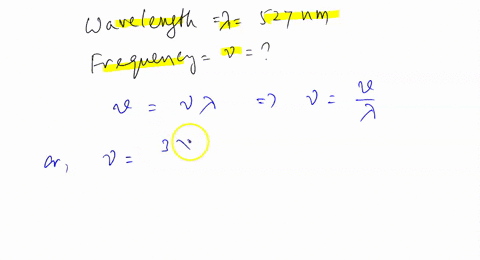 Wavelength = λ = 527 nm
Frequency = ν = ?
v = ν λ => ν = v/λ
or, ν = 3 ×